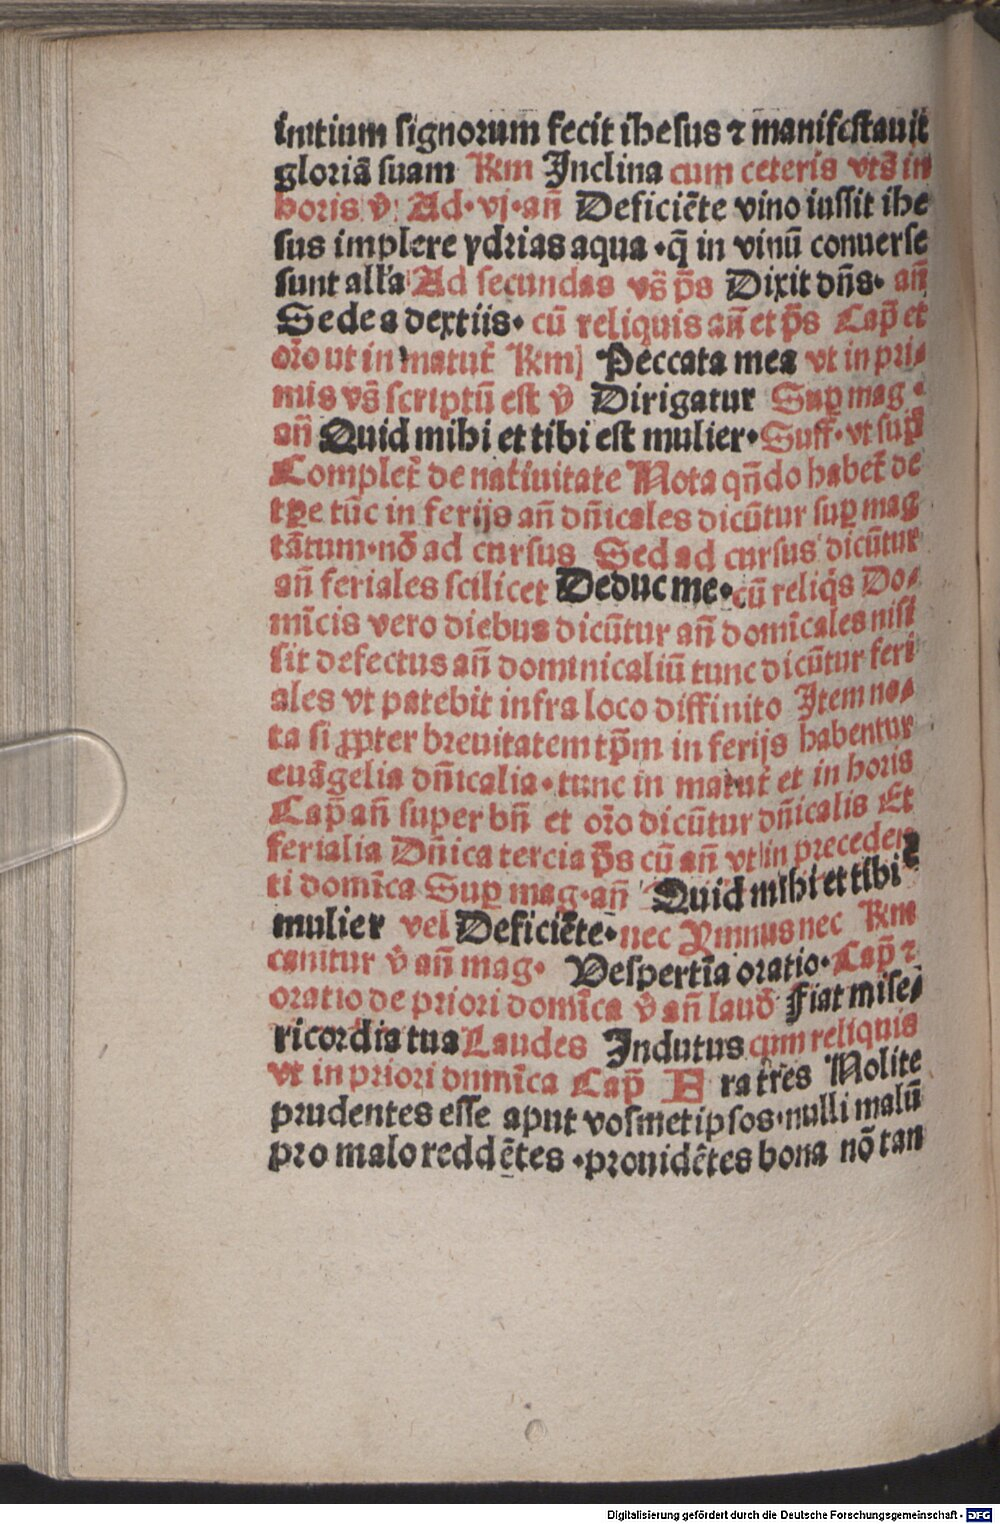 initium signorum fecit ihesus ⁊ manifestauit
gloriā suam Rm Inclina cum ceteris vts̄ in
horis v̄. Ad·vj·an̄ Deficiēte vino iussit ihe
sus implere ydrias aqua ·q̄ in vinū conuerse
sunt alła Ad secundas vs̄ p̄s Dixit dn̄s· an̄
Sede a dextiis· cū reliquis an̄ et p̄s Cap̄ et
or̄o ut in matut̄ Rm Peccata mea vt in pri⸗
mis vs̄ scriptū est v̄ Dirigatur Suꝑ mag·
an̄ Quid mihi et tibi est mulier· Suff·vt suꝑ
Complet̄ de natiuitate Nota qn̄do habet̄ de
tꝑe tūc in ferijs an̄ dn̄icales dicūtur suꝑ mag
tātum·nō ad cursus Sed ad cursus dicūtur
an̄ feriales scilicet Deduc me·cū reliq̄s Do⸗
mīcis vero diebus dicūtur an̄ domīcales nisi
sit defectus an̄ dominicaliū tunc dicūtur feri
ales vt patebit infra loco diffinito Item no⸗
ta si ꝓpter breuitatem tp̄m in ferijs habentur
euāgelia dn̄icalia·tunc in matut̄ et in horis
Cap̄ an̄ super bn̄ et or̄o dicūtur dn̄icalis Et
ferialia Dn̄ica tercia p̄s cū an̄ vt in preceden
ti domīca Suꝑ mag·an̄ Quid mihi et tibi ⁊
mulier vel Deficiēte·nec Ymnus nec Rm
canitur v̄ an̄ mag· Vespertīa oratio·Cap̄ ⁊
oratio de priori domīca v̄ an̄ laud̄ Fiat mise⸗
ricordia tua Laudes Indutus cum reliquis
vt in priori dumīca Cap̄ F ratres Nolite
prudentes esse aput vosmetipsos·nulli malū
pro malo reddētes ·prouidētes bona nō tan
Digitalisierung gefördert durch die Deutsche Forschungsgemeinschaft - DFG